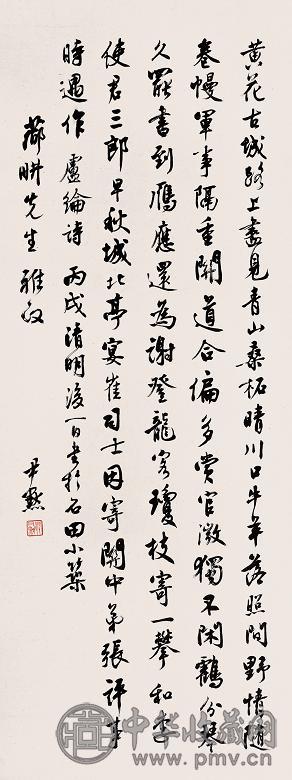 黃花古城路上盡見青山桑柘晴川口牛羊落照間野情隨
卷幔軍事隔重關道合偏多賞官微獨不閑鶴分琴
久罷書到鴈應還為謝登龍客瓊枝寄一攀 和李
使君三郎早秋城北亭宴崔司士因寄關中弟張評事
時遇作 盧綸詩 丙戌清明後一日書於石田小築
薌畊先生雅政
尹默
中华收藏网
www.pmv.cn